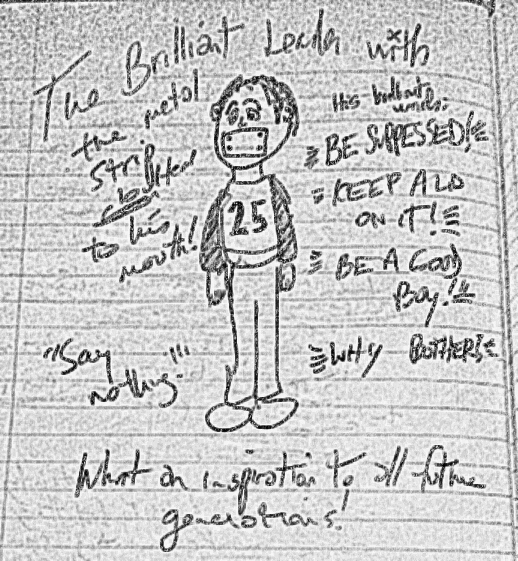 The Brilliant Leader with
the metal
strip
to his
mouth!
His brilliant
words:
BE SUPPRESSED!
KEEP A LID
ON IT!
BE A GOOD
BOY!
WHY BOTHER!
25
"Say
nothing!"
What an inspiration to all future
generations!